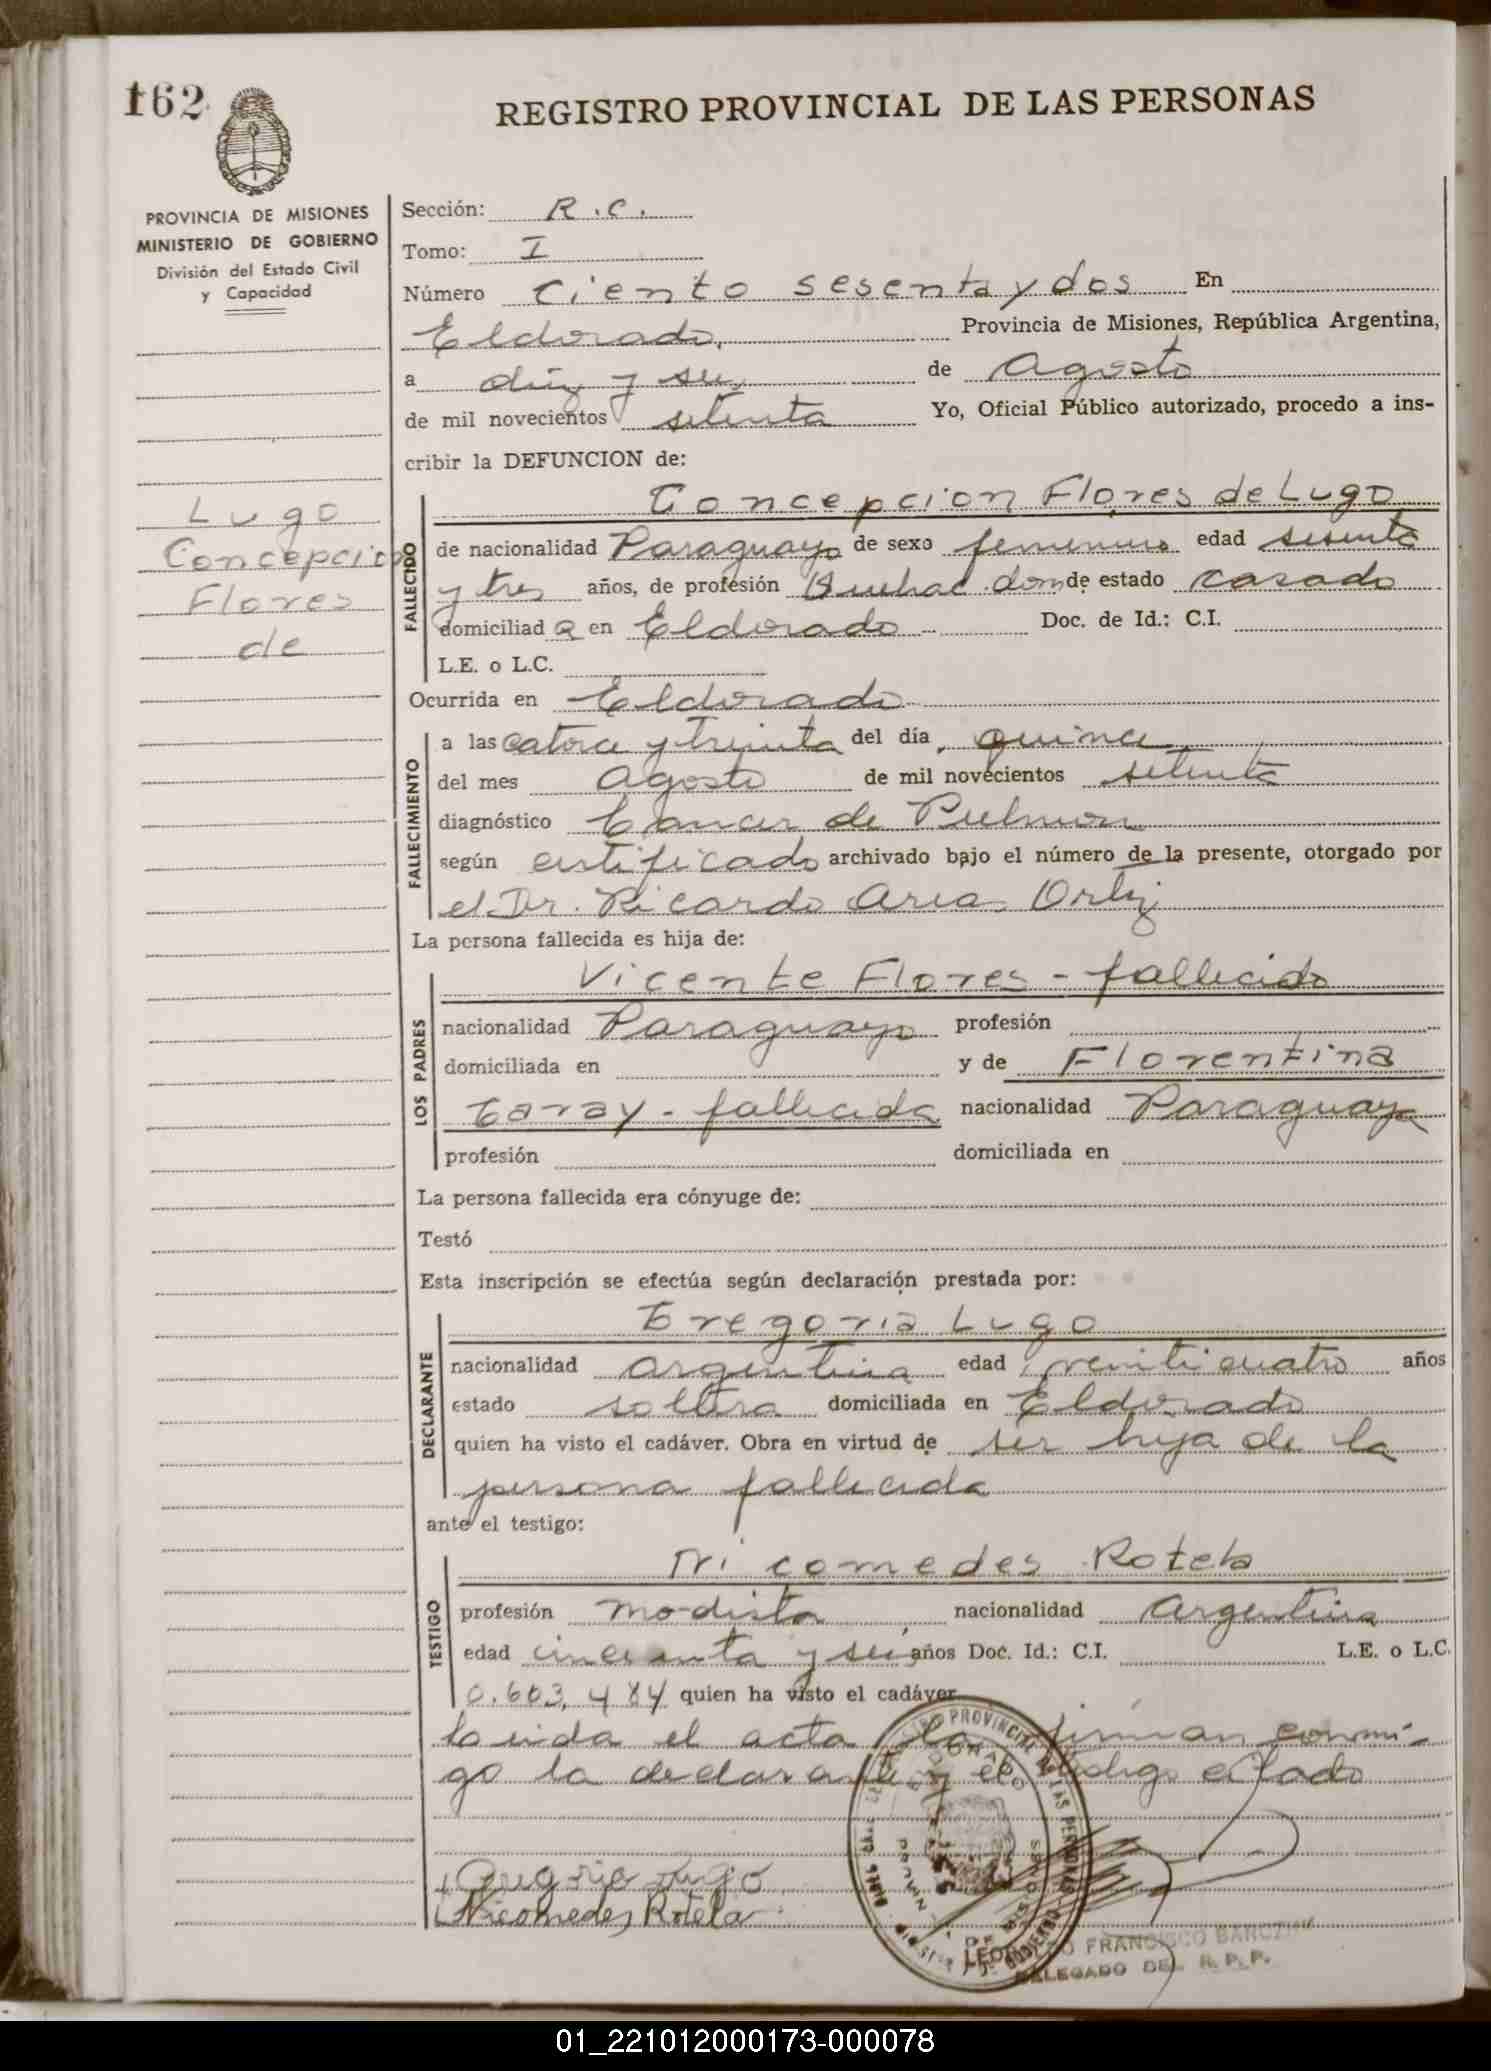 162
REGISTRO PROVINCIAL DE LAS PERSONAS
PROVINCIA DE MISIONES
MINISTERIO DE GOBIERNO
División del Estado Civil
y Capacidad
Lugo
Concepcion
Flores
de
Sección: R.C.
Tomo: I
Número Ciento sesenta y dos En
Eldorado, Provincia de Misiones, República Argentina,
a diez y seis de Agosto
de mil novecientos setenta Yo, Oficial Público autorizado, procedo a ins-
cribir la DEFUNCION de:
FALLECIDO
Concepcion Flores de Lugo
de nacionalidad Paraguaya de sexo femenino edad sesenta
y tres años, de profesión Quehac. dom de estado casado
domiciliad a en Eldorado Doc. de Id.: C.I.
L.E. o L.C.
Ocurrida en Eldorado
FALLECIMIENTO
a las catorce y treinta del día quince
del mes Agosto de mil novecientos setenta
diagnóstico Cancer de Pulmon
según certificado archivado bajo el número de la presente, otorgado por
el Dr. Ricardo Ortiz
La persona fallecida es hija de:
LOS PADRES
Vicente Flores - fallecido
nacionalidad Paraguayo profesión
domiciliada en y de Florentina
Garay - fallecida nacionalidad Paraguaya
profesión domiciliada en
La persona fallecida era cónyuge de:
Testó
Esta inscripción se efectúa según declaración prestada por:
DECLARANTE
Gregoria Lugo
nacionalidad argentina edad veinticuatro años
estado soltera domiciliada en Eldorado
quien ha visto el cadáver. Obra en virtud de ser hija de la
persona fallecida
ante el testigo:
TESTIGO
Nicomedes Rotela
profesión modista nacionalidad Argentina
edad cincuenta y seis años Doc. Id.: C.I. L.E. o L.C.
0.603.484 quien ha visto el cadáver
Leida el acta la firman conmi-
go la declarante y el testigo citado
Gregoria Lugo
Nicomedes Rotela
REGISTRO PROVINCIAL DE LAS PERSONAS
ELDORADO
FRANCISCO
DELEGADO DEL R.P.P.
01_221012000173-000078